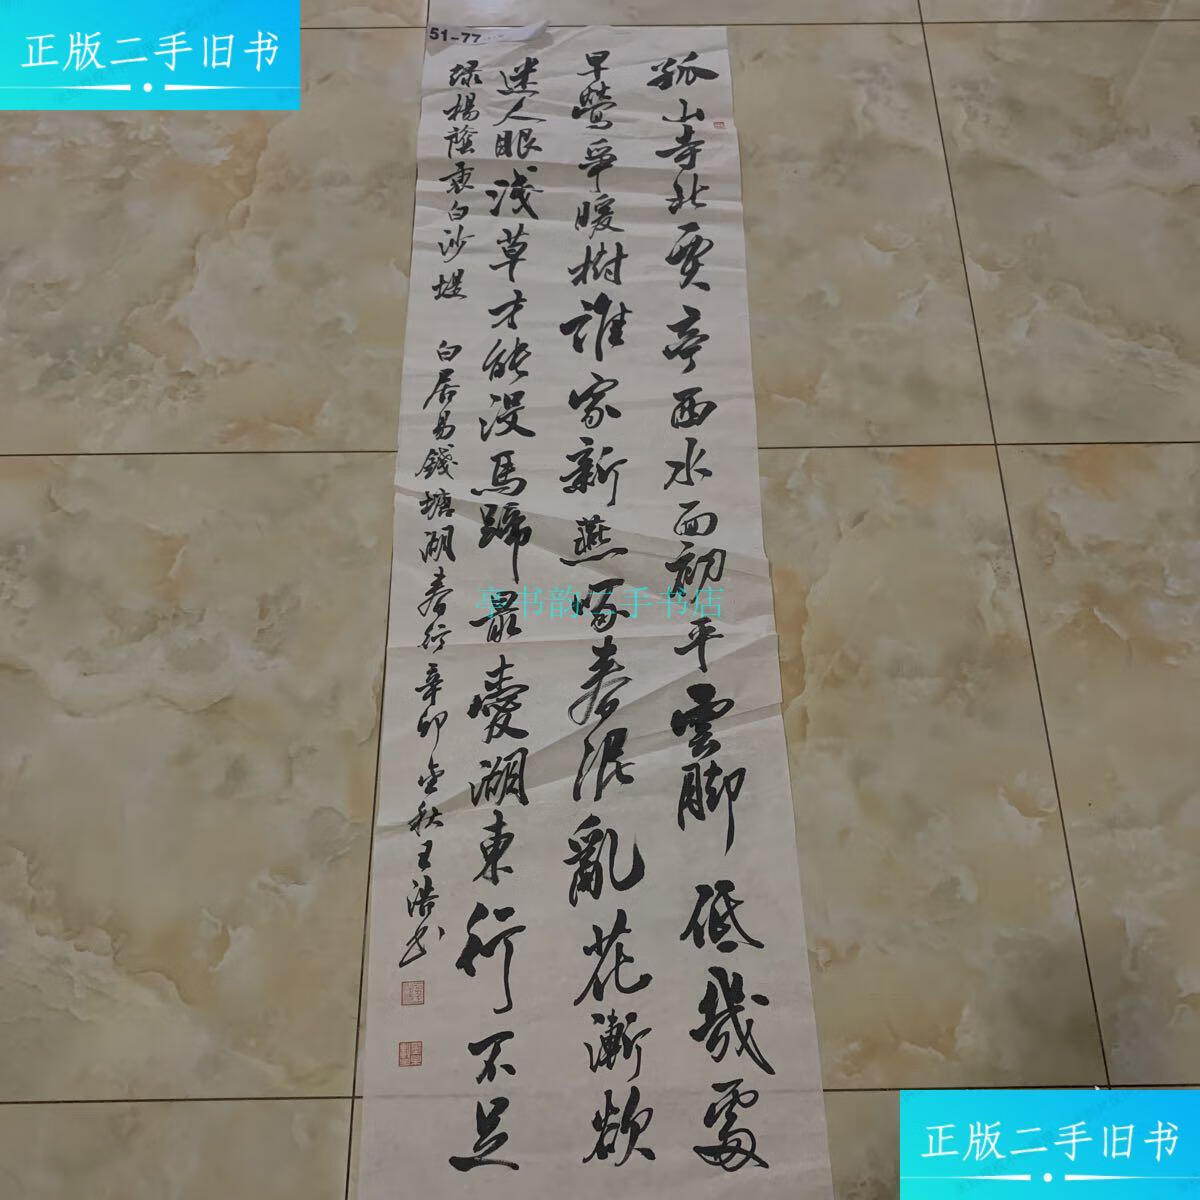 正版二手旧书
51-77
孤山寺北賈亭西水面初平雲脚低幾處
早鶯爭暖樹誰家新燕啄春泥亂花漸欲
迷人眼淺草才能沒馬蹄最愛湖東行不足
绿楊蔭裏白沙堤 白居易錢塘湖春行辛卯金秋王浩书
亭书韵二手书店
正版二手旧书